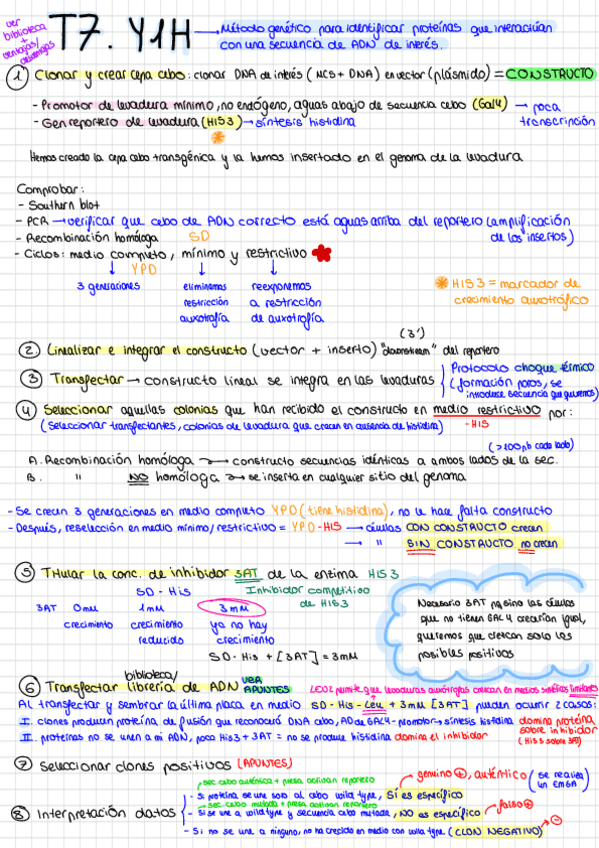 ver
biblioteca
+
ventajas/
desventajas
T7. Y1H → Método genético para identificar proteínas que interactúan
con una secuencia de ADN de interés.
① Clonar y crear cepa cebo: clonar DNA de interés (NCS + DNA) en vector (plásmido) = CONSTRUCTO
- Promotor de levadura mínimo, no endógeno, aguas abajo de secuencia cebo (Gal4) → poca
transcripción
- Gen reportero de levadura (HIS3) → síntesis histidina
Hemos creado la cepa cebo transgénica y la hemos insertado en el genoma de la levadura
Comprobar:
- Southern blot
- PCR → verificar que cebo de ADN correcto está aguas arriba del reportero (amplificación
de los insertos)
- Recombinación homóloga SD
- Ciclos: medio completo, mínimo y restrictivo
YPD
3 generaciones eliminamos reexponemos
restricción a restricción
auxotrofía de auxotrofía
HIS3 = marcador de
crecimiento auxotrófico
(3')
② Linealizar e integrar el constructo (vector + inserto) "downstream" del reportero
③ Transfectar → constructo lineal se integra en las levaduras
Protocolo choque térmico
(formación poros, se
introduce secuencia que queremos)
④ Seleccionar aquellas colonias que han recibido el constructo en medio restrictivo por:
(seleccionar transfectantes, colonias de levadura que crecen en ausencia de histidina) -HIS
(>200 pb cada lado)
A. Recombinación homóloga → constructo secuencias idénticas a ambos lados de la sec.
B. " NO homóloga → se inserta en cualquier sitio del genoma
- Se crecen 3 generaciones en medio completo YPD (tiene histidina), no le hace falta constructo
- Después, reselección en medio mínimo/restrictivo = YPD-HIS → células CON CONSTRUCTO crecen
→ " SIN CONSTRUCTO no crecen
⑤ Titular la conc. de inhibidor 3AT de la enzima HIS3
SD - His Inhibidor competitivo
de HIS3
3AT 0mM 1mM 3mM
crecimiento crecimiento ya no hay
reducido crecimiento
SD - His + [3AT] = 3mM
Necesario 3AT pq sino las células
que no tienen GAL4 crecerían igual,
queremos que crezcan solo los
posibles positivos
biblioteca/
⑥ Transfectar librería de ADN VER
APUNTES
LEU2 permite que levaduras auxótrofas crezcan en medios sintéticos limitantes
Al transfectar y sembrar la última placa en medio SD - His - Leu + 3mM [3AT] pueden ocurrir 2 casos:
I. clones producen proteína de fusión que reconocerá DNA cebo, AD de GAL4 → promotor → síntesis histidina domina proteína
sobre inhibidor
(His3 sobre 3AT)
II. proteínas no se unen a mi ADN, poca His3 + 3AT = no se produce histidina domina el inhibidor
⑦ Seleccionar clones positivos (APUNTES)
sec cebo auténtica + presa activan reportero
genuino ⊕, auténtico (se realiza
un EMSA)
- Si proteína se une solo al cebo wild type, SÍ es específico
sec. cebo mutada + presa activan reportero
⑧ Interpretación datos - Si se une a wild type y secuencia cebo mutada, NO es específico → falso ⊕
- Si no se une a ninguno, no ha crecido en medio con wild type (CLON NEGATIVO) → ⊖